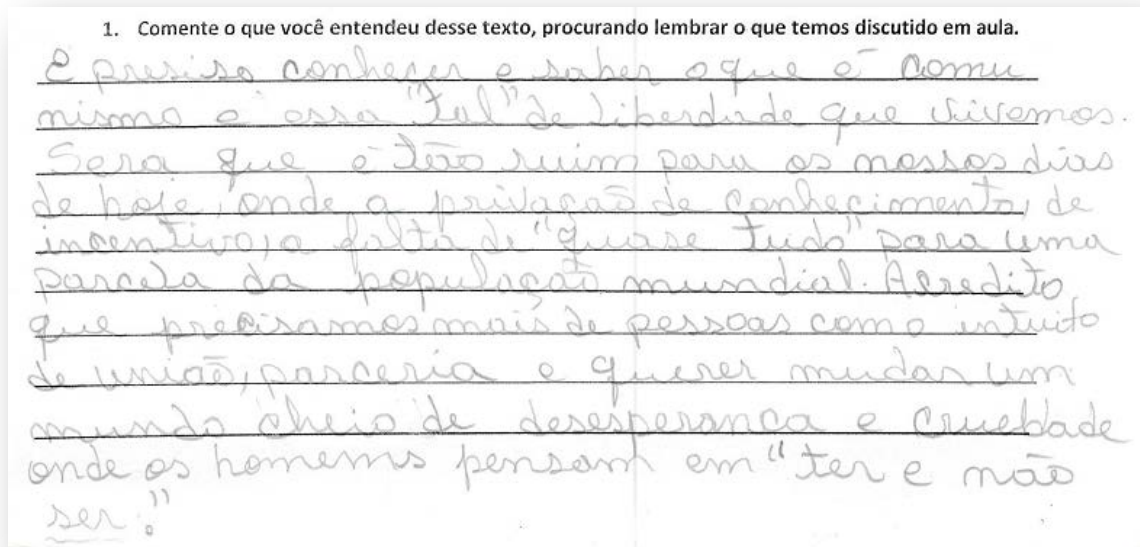 1. Comente o que você entendeu desse texto, procurando lembrar o que temos discutido em aula.
É presiso conhecer e saber oque é comu
nismo e essa "tal" de liberdade que vivemos.
Sera que é tão ruim para os nossos dias
de hoje, onde a privação de conhecimento, de
incentivo, a falta de "quase tudo" para uma
parcela da população mundial. Acredito
que precisamos mais de pessoas com o intuito
de união, parceria e querer mudar um
mundo cheio de desesperança e crueldade
onde os homems pensam em "ter e não
ser."